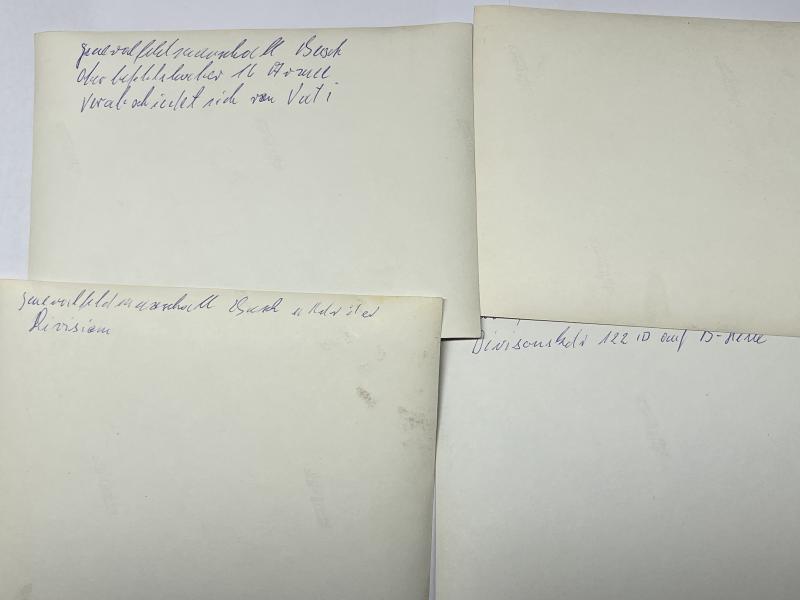 Generalfeldmarschall Busch
Oberbefehlshaber 16 Armee
verabschiedet sich von
Generalfeldmarschall Busch
Division
Divisionskdr 122 ID auf